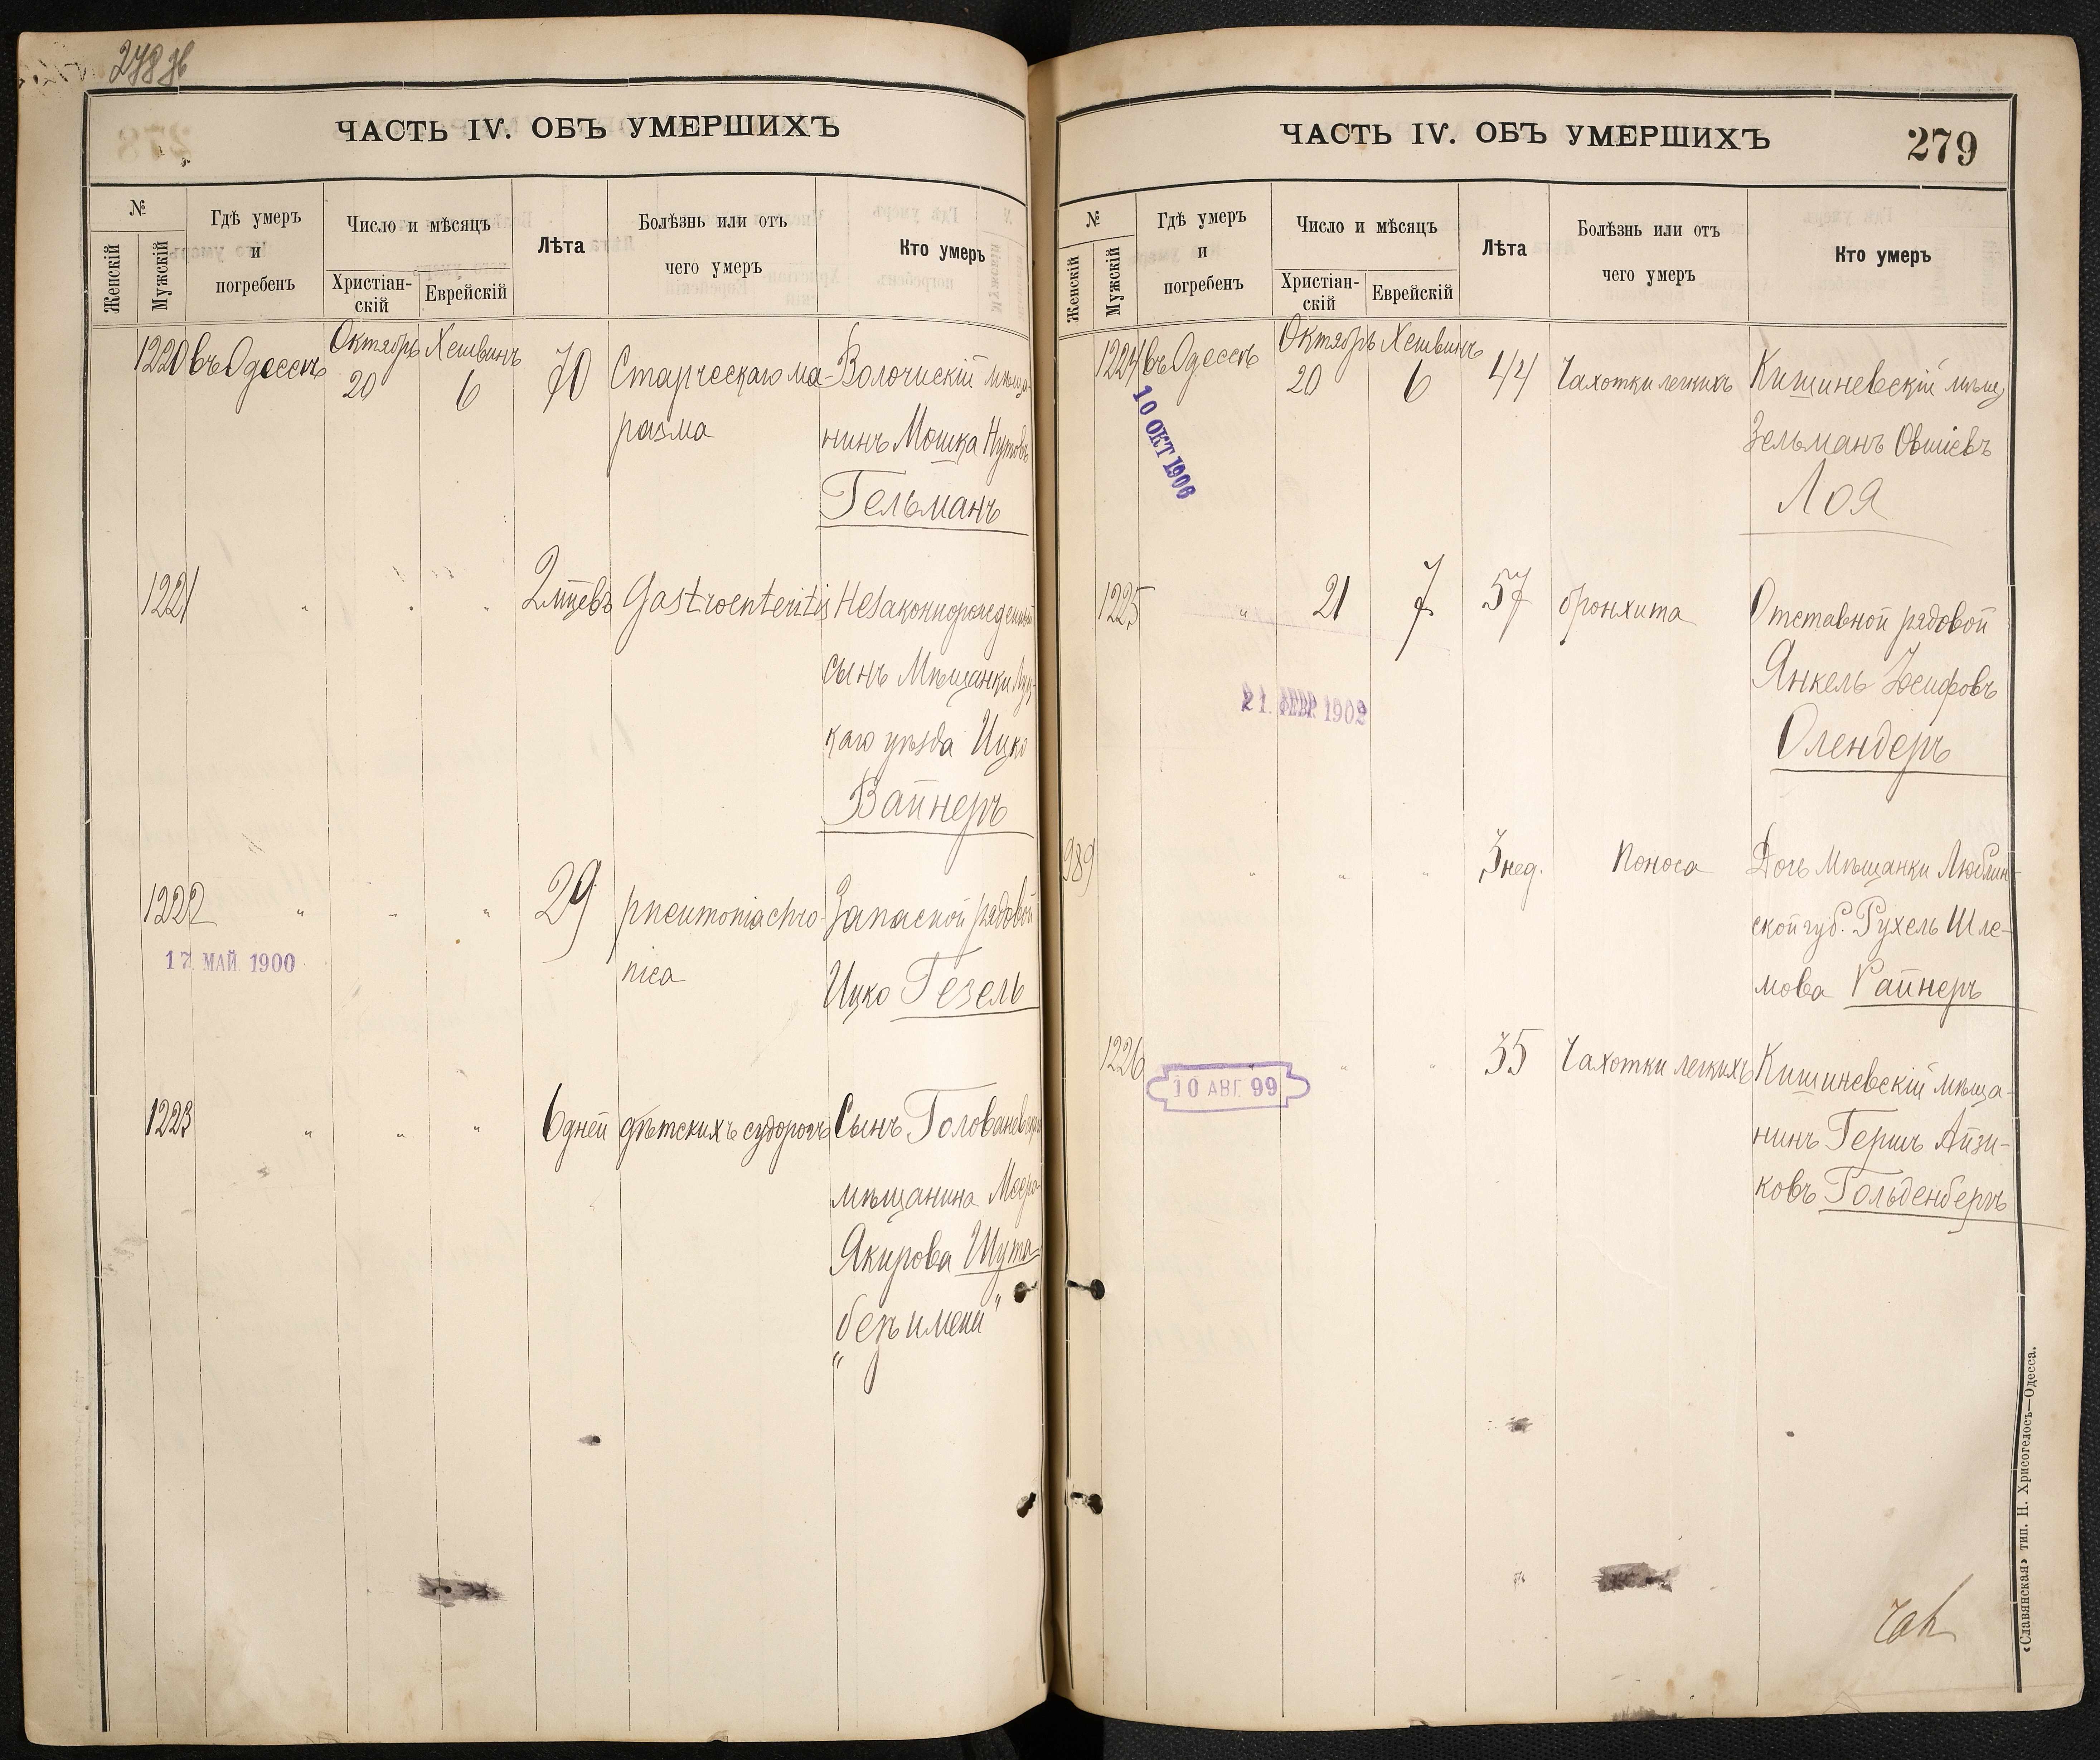 ЧАСТЬ IV. ОБЪ УМЕРШИХЪ
№
Женскій
Мужскій
Гдѣ умеръ
и
погребенъ
Число и мѣсяцъ
Христіан-
скій
Еврейскій
Лѣта
Болѣзнь или отъ
чего умеръ
Кто умеръ
1220 въ Одессѣ Октябрь 20 Хешвинъ 6 70 Старческаго ма- Волочискій мѣща-
разма нинъ Мошка Нутовъ
Гельманъ
1221 " " " 2 мцевъ Gastroenteritis Незаконнорожденный
сынъ Мѣщанки
каго уѣзда Ицко
Вайнеръ
1222 " " " 29 pneumonia chro- Запасной рядовой
17 МАЙ 1900
nica Ицко Гезель
1223 " " " 6 дней дѣтскихъ судорогъ Сынъ Голованевскаго
мѣщанина Меера
Якирова Шута
„безъ имени"
ЧАСТЬ IV. ОБЪ УМЕРШИХЪ
279
№
Женскій
Мужскій
Гдѣ умеръ
и
погребенъ
Число и мѣсяцъ
Христіан-
скій
Еврейскій
Лѣта
Болѣзнь или отъ
чего умеръ
Кто умеръ
1224 въ Одессѣ Октябрь 20 Хешвинъ 6 44 Чахотки легкихъ Кишиневскій мѣщ.
10 ОКТ 1906
Зельманъ Овшіевъ
Лоя
1225 " 21 7 57 бронхита Отставной рядовой
Янкель Іосифовъ
21. ФЕВР. 1902
Олендеръ
989 " " " 3 нед. поноса Дочь Мѣщанки Люблин-
ской губ. Рухель Шле-
мова Райнеръ
1226 " " " 35 Чахотки легкихъ Кишиневскій мѣща-
10 АВГ. 99
нинъ Гершъ Айзи-
ковъ Гольденбергъ
«Славянская» тип. Н. Хрисогелосъ—Одесса.